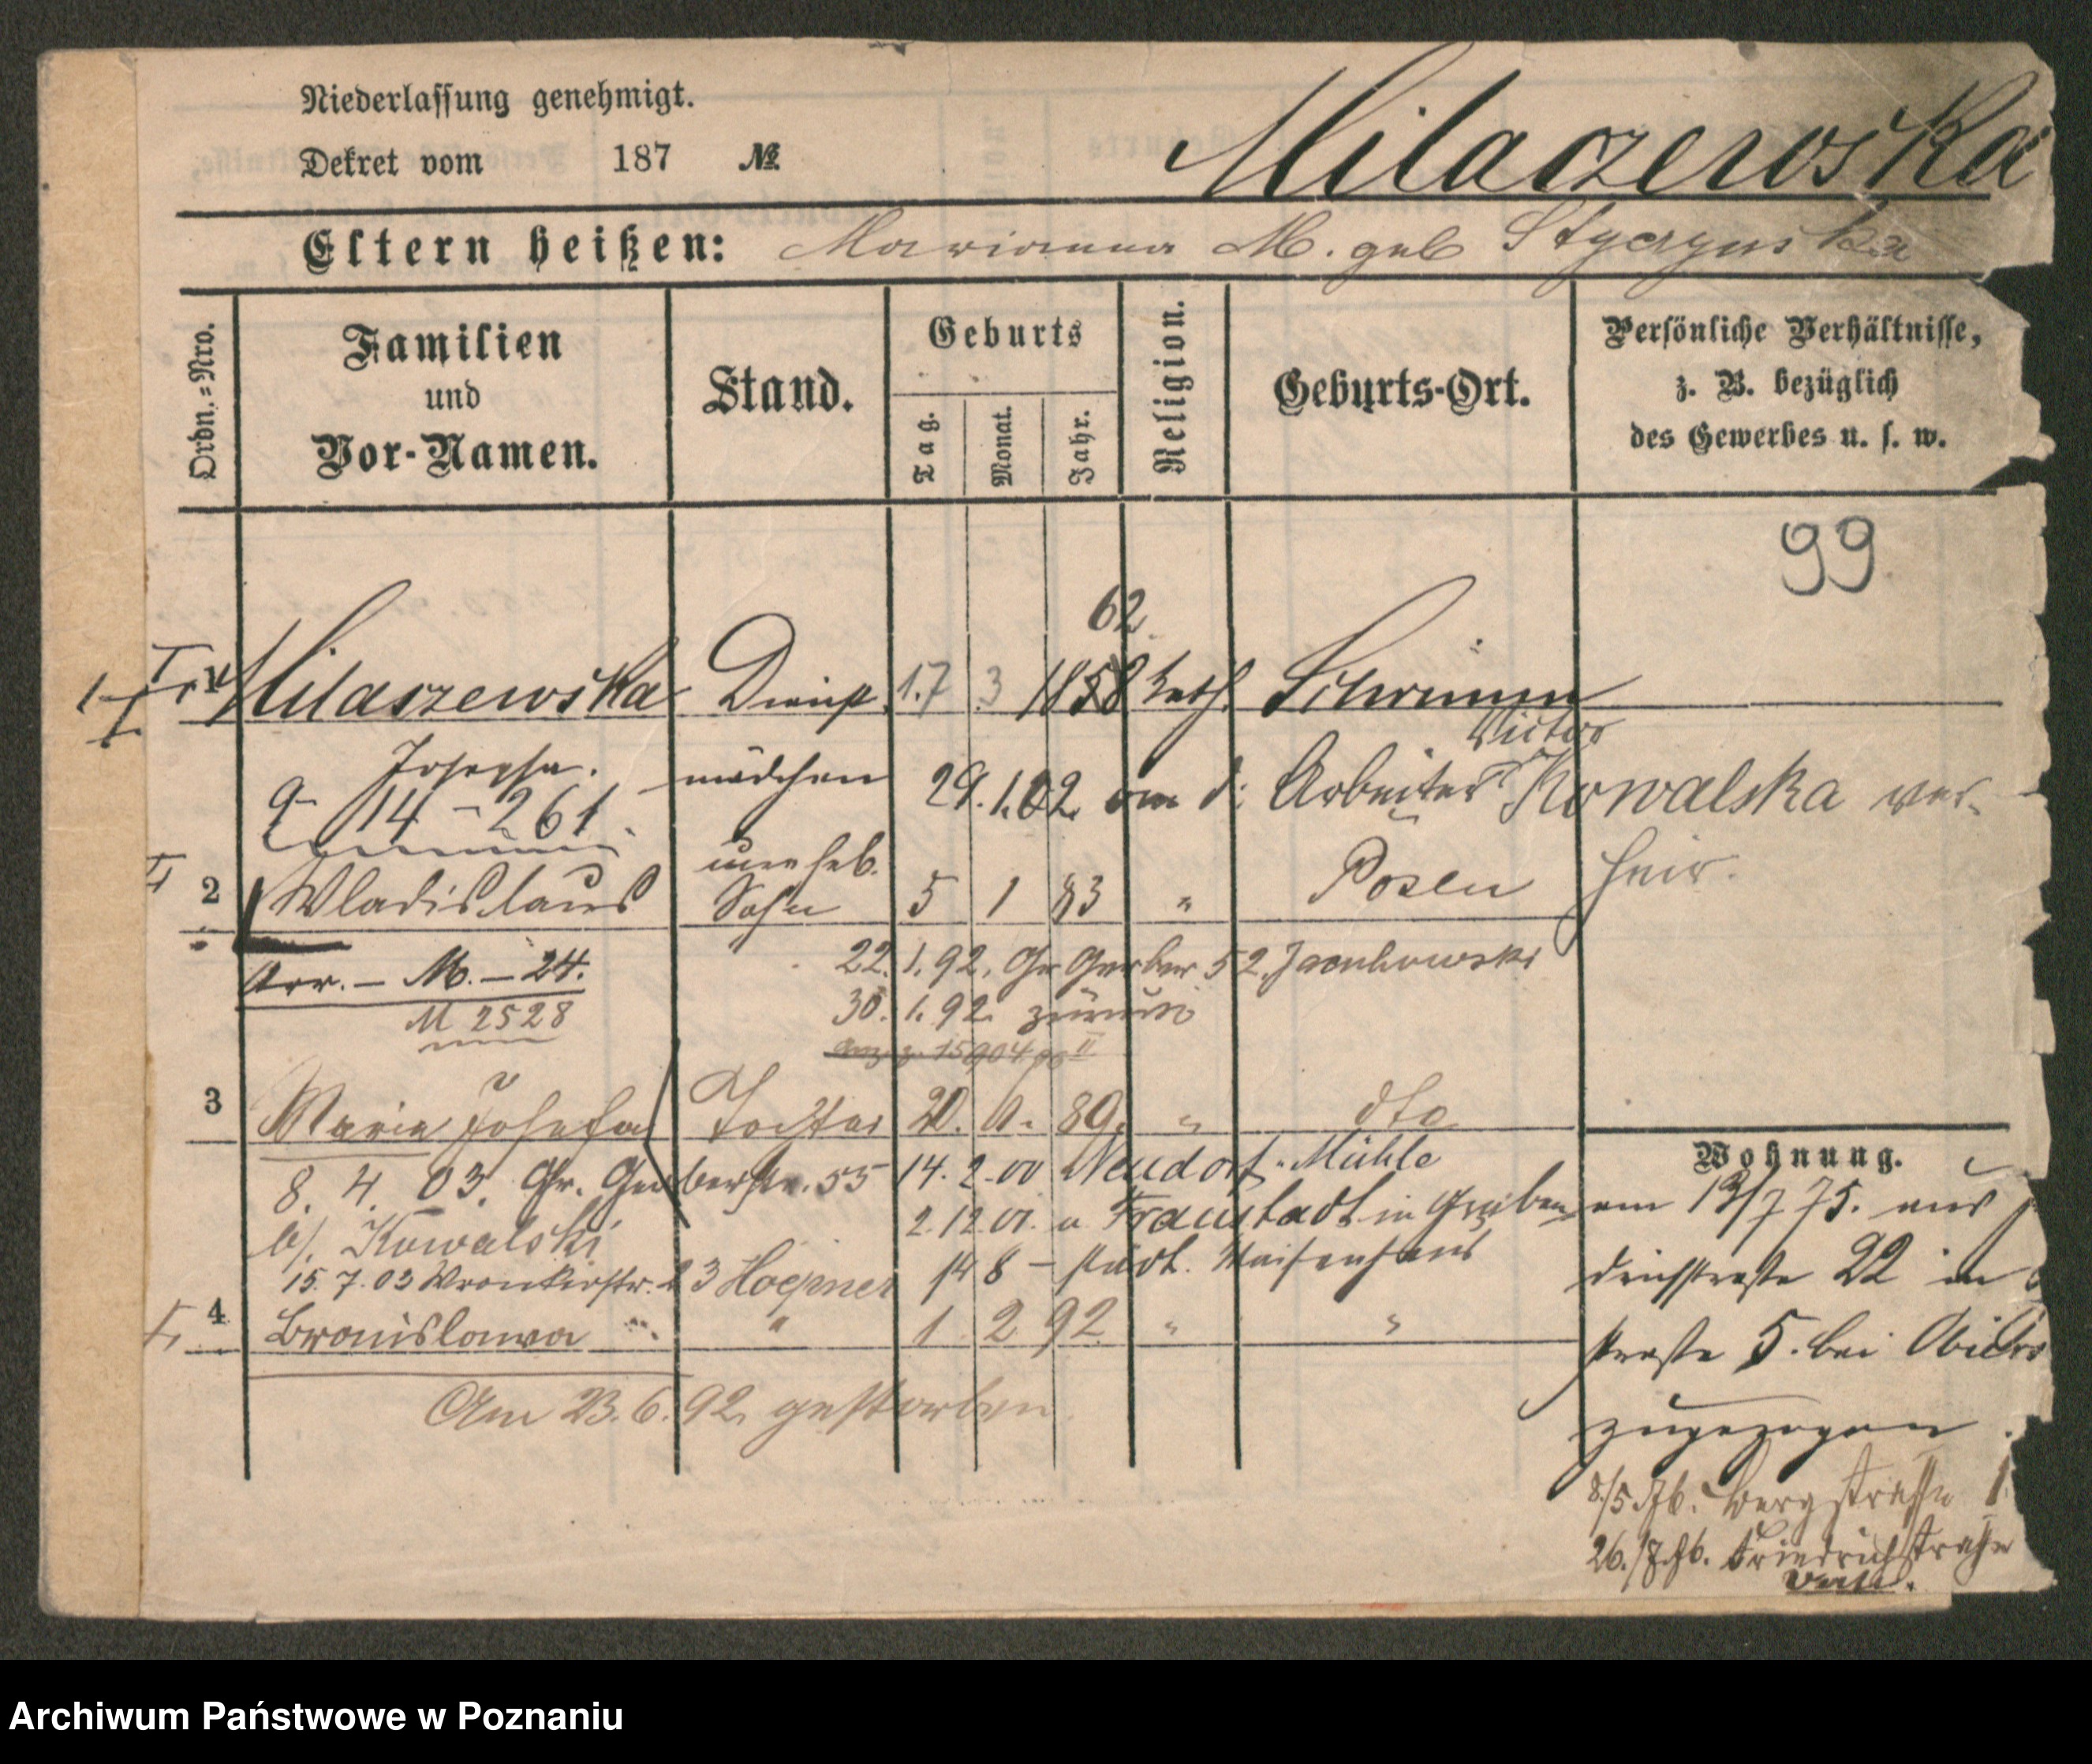 Niederlassung genehmigt.
Dekret vom 187 №
Milaczewska
Eltern heißen: Marianna M. geb Styczynska
Ordn.-Nro.
Familien und Vor-Namen.
Stand.
Geburts
Tag. Monat. Jahr.
Religion.
Geburts-Ort.
Persönliche Verhältnisse,
z. B. bezüglich
des Gewerbes u. s. w.
99
62
1 Milaszewska Dienst 17 3 1858 kath. Schrimm
Josepha. mädchen 29.1.02 Arbeiter Victor Kowalska ver-
heir.
14 - 261
unehel.
2 Wladislaus Sohn 5 1 83 " Posen
Arr. – M. – 24. 22.1.92. Gr Gerber 52
M 2528 30.1.92 zurück
3 Maria Josefa Tochter 20. 89. " dto
8. 4. 03. Gr. Gerberstr. 55 14.2.00 Neudorf-Mühle
b/. Kowalski 2.12.01. Fraustadt in
15.7.03 Wronkerstr. 23 Hoepner 14 8 – städt. Waisenhaus
4 Bronislawa " 1 2 92 " "
Am 23.6.92 gestorben.
Wohnung.
am 13/7 75. aus
drichstraße 22 in
straße 5. bei
zugezogen
8/5 76. Bergstraße 1
26./7.76. Friedrichstraße
Archiwum Państwowe w Poznaniu